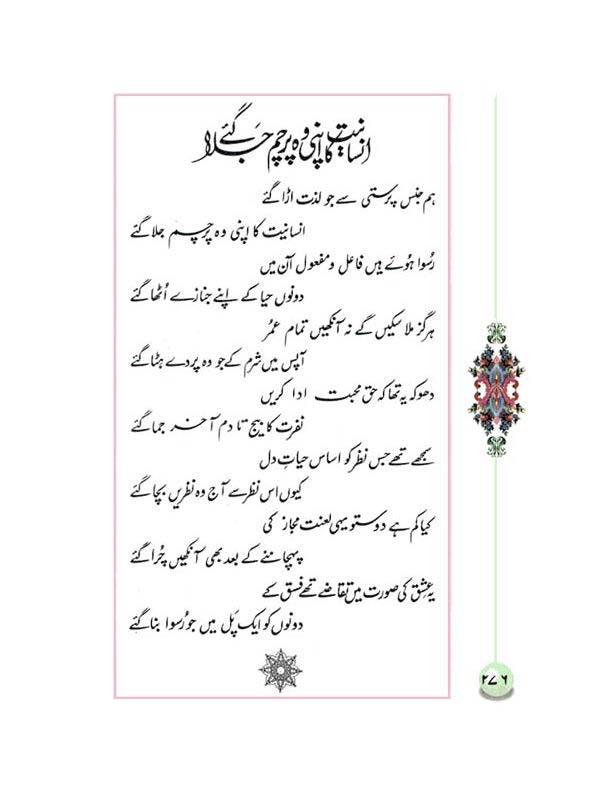 انسانیت کا اپنی وہ پرچم جلا گئے
ہم جنس پرستی سے جو لذت اڑا گئے
انسانیت کا اپنی وہ پرچم جلا گئے
رُسوا ہُوئے ہیں فاعل و مفعول آن میں
دونوں حیا کے اپنے جنازے اُٹھا گئے
ہرگز ملا سکیں گے نہ آنکھیں تمام عمُر
آپس میں شرم کے جو وہ پردے ہٹا گئے
دھوکہ یہ تھا کہ حق محبت ادا کریں
نفرت کا بیج تا دم آخر جما گئے
سمجھے تھے جس نظر کو اساس حیاتِ دل
کیوں اس نظر سے آج وہ نظریں بچا گئے
کیا کم ہے دوستو یہی لعنت مجاز کی
پہچاننے کے بعد بھی آنکھیں چُرا گئے
یہ عِشق کی صورت میں تقاضے تھے فسق کے
دونوں کو ایک پَل میں جو رُسوا بنا گئے
۲۷۶